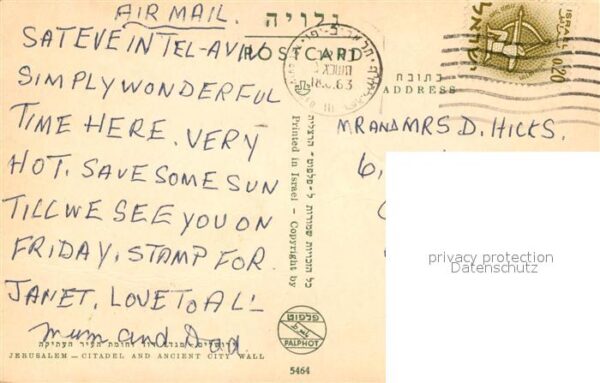 AIR MAIL.
גלויה
POSTCARD
SAT EVE IN TEL-AVIV
SIMPLY WONDERFUL
TIME HERE. VERY
HOT. SAVE SOME SUN
TILL WE SEE YOU ON
FRIDAY. STAMP FOR
JANET. LOVE TO ALL
Mum and Dad
ירושלים – מגדל דוד וחומת העיר העתיקה
JERUSALEM – CITADEL AND ANCIENT CITY WALL
כל הזכויות שמורות ל"פלפוט" הרצליה
Printed in Israel – Copyright by
פלפוט
PALPHOT
5464
63
ISRAEL
ישראל
0.20
כתובת
ADDRESS
MR AND MRS D. HICKS.
6,
privacy protection
Datenschutz